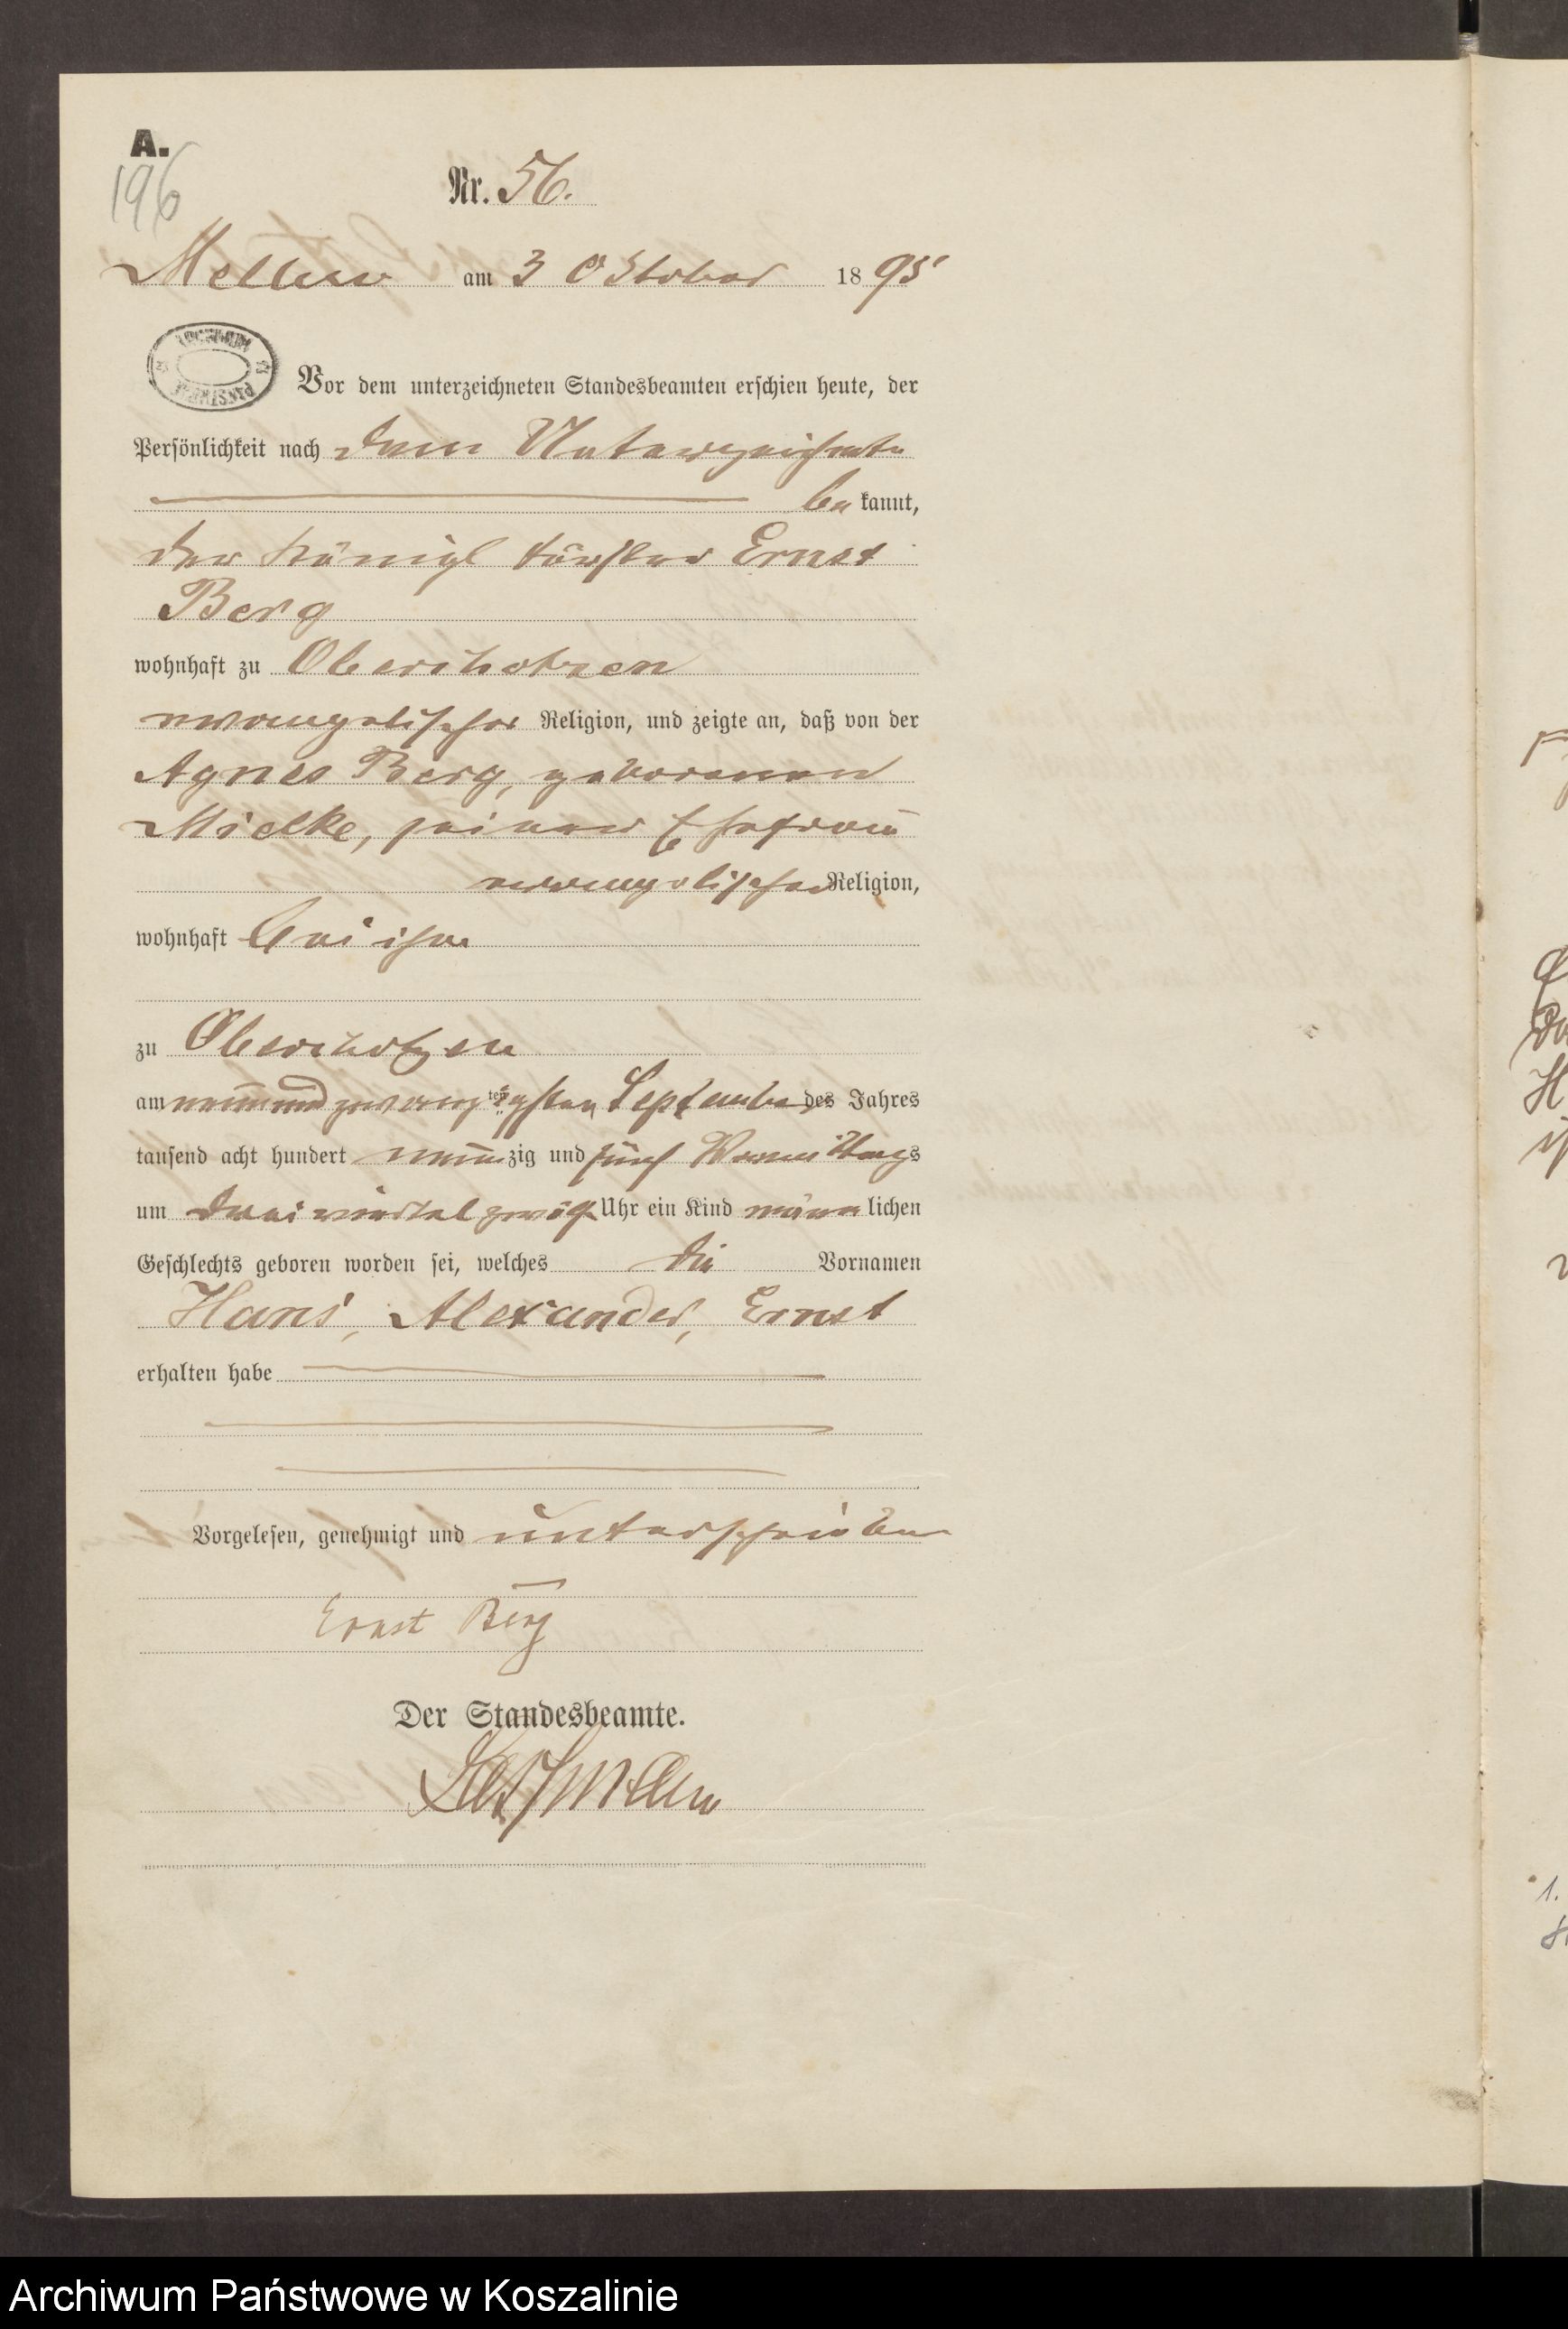 A.
196
Nr. 56.
am 3 Oktober 1895
ARCHIWUM PAŃSTWOWE
Vor dem unterzeichneten Standesbeamten erschien heute, der
Persönlichkeit nach dem Unterzeichnete
bekannt,
der Königl Förster Ernst
Berg
wohnhaft zu
evangelischer Religion, und zeigte an, daß von der
Agnes Berg, geborenen
Mielke, seiner Ehefrau
evangelischer Religion,
wohnhaft bei ihm
zu
am neunundzwanzigsten September des Jahres
tausend acht hundert neunzig und fünf Vormittags
um dreiviertel zwölf Uhr ein Kind männlichen
Geschlechts geboren worden sei, welches die Vornamen
Hans, Alexander, Ernst
erhalten habe
Vorgelesen, genehmigt und unterschrieben
Ernst Berg
Der Standesbeamte.
1.
Archiwum Państwowe w Koszalinie